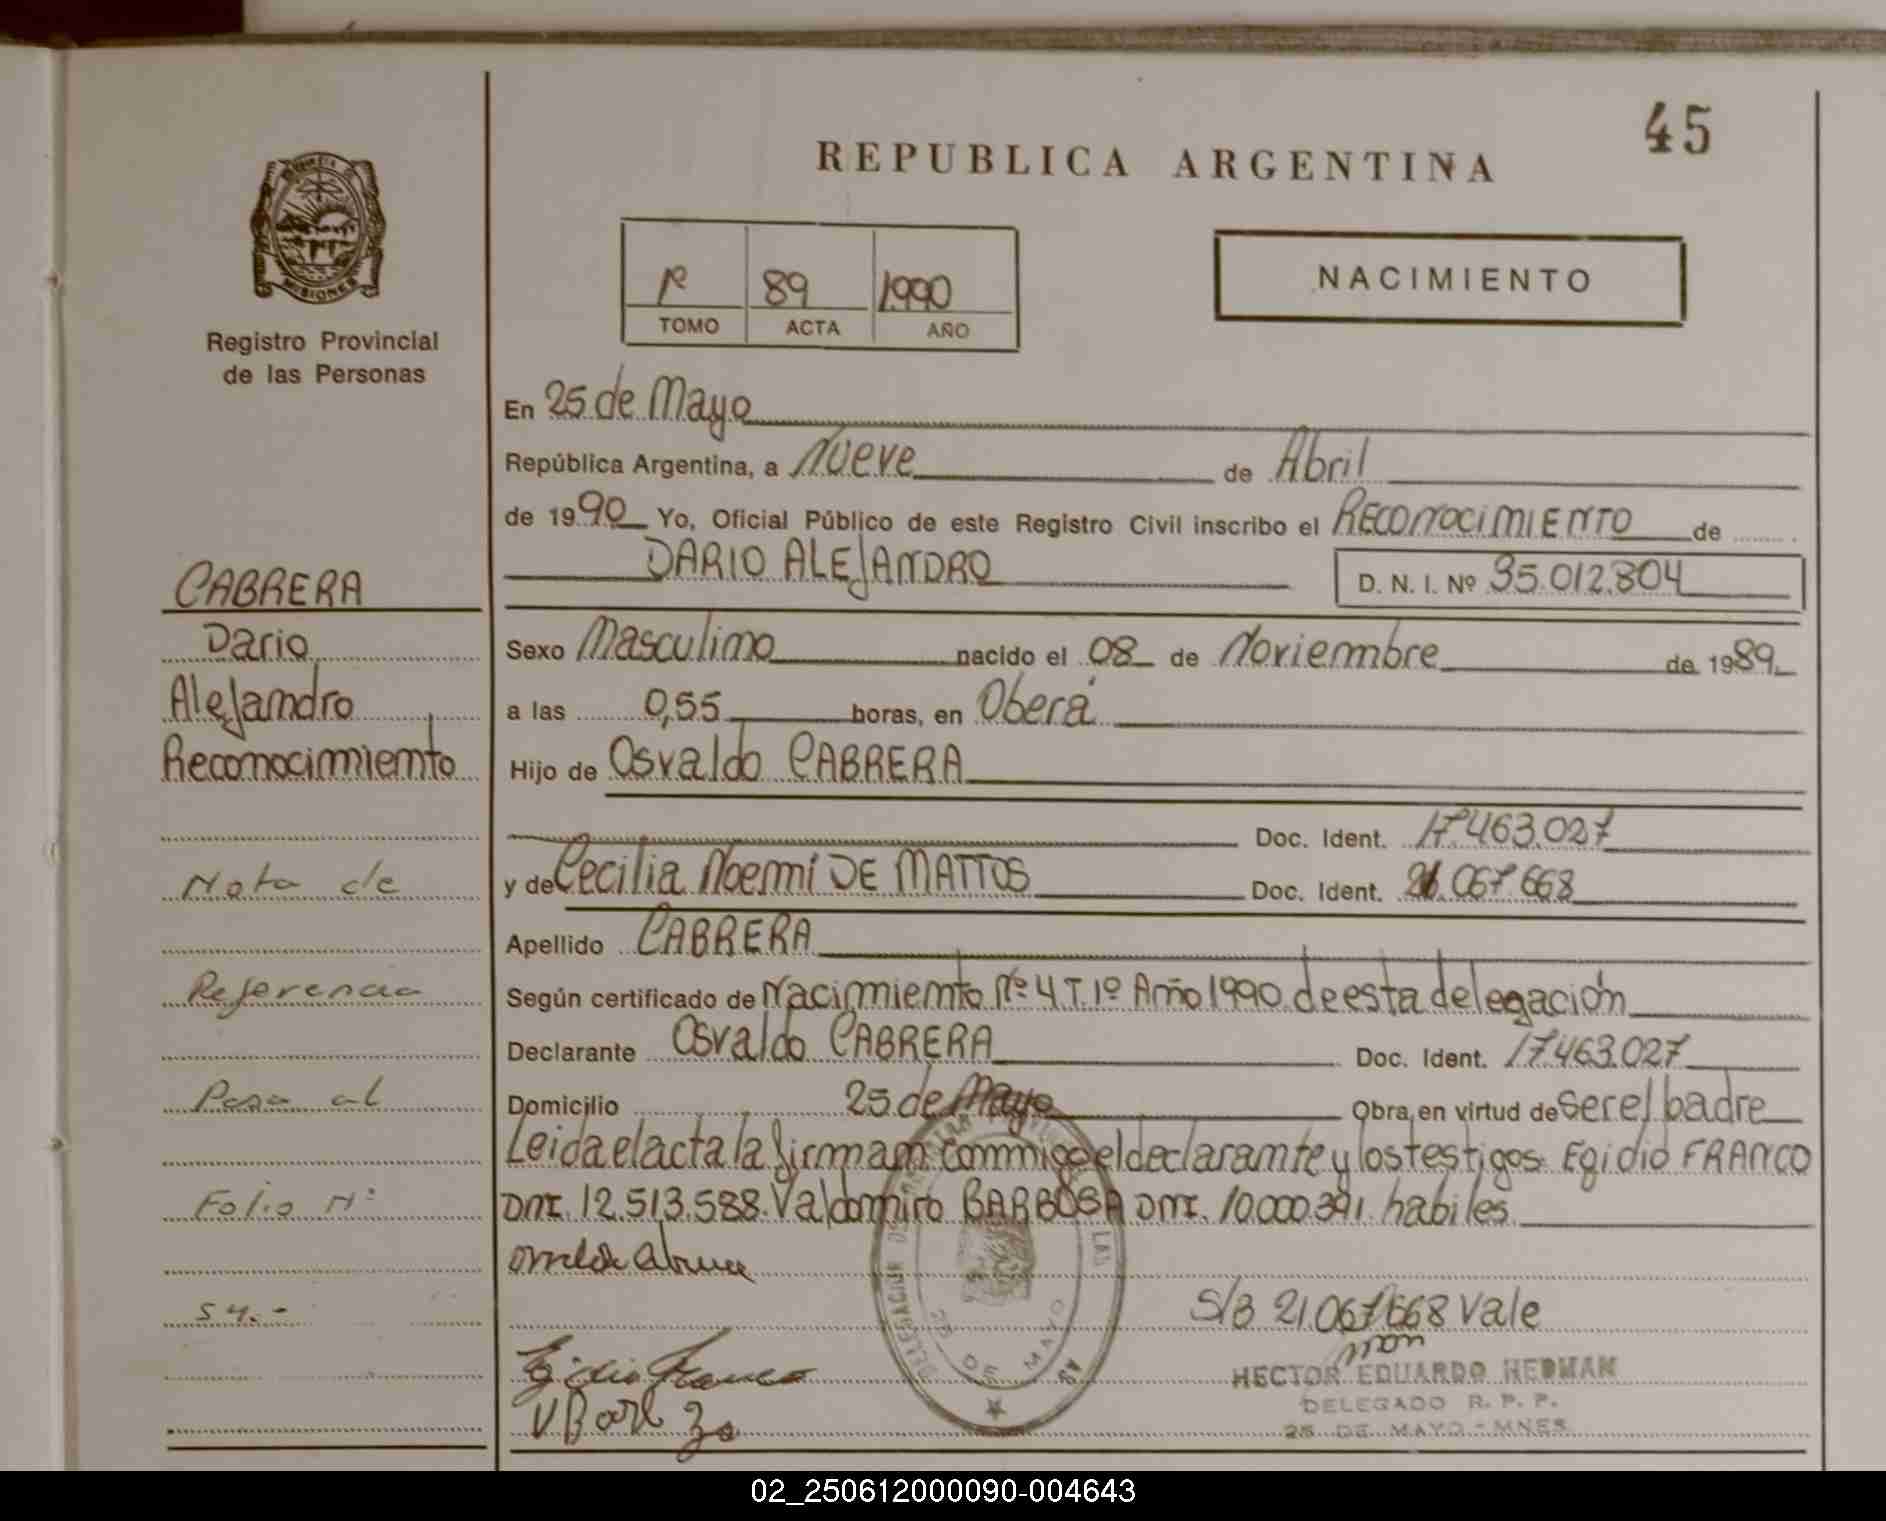 45
REPUBLICA ARGENTINA
MISIONES
Registro Provincial
de las Personas
1º 89 1990
TOMO ACTA AÑO
NACIMIENTO
En 25 de Mayo
República Argentina, a Nueve de Abril
de 1990 Yo, Oficial Público de este Registro Civil inscribo el RECONOCIMIENTO de
DARIO ALEJANDRO D. N. I. Nº 35.012.804
Sexo Masculino nacido el 08 de Noviembre de 1989
a las 0,55 horas, en Oberá
Hijo de Osvaldo CABRERA
Doc. Ident. 17.463.027
y de Cecilia Noemí DE MATTOS Doc. Ident. 21.067.668
Apellido CABRERA
Según certificado de Nacimiento Nº 4 T 1º Año 1990 de esta delegación
Declarante Osvaldo CABRERA Doc. Ident. 17.463.027
Domicilio 25 de Mayo Obra, en virtud de ser el padre
Leida el acta la firman conmigo el declarante y los testigos Egidio FRANCO
DNI. 12.513.588. Valdomiro BARBOSA DNI. 10.000.391. habiles
S/B 21.067.668 Vale
Egidio Franco
HECTOR EDUARDO HEDMAN
DELEGADO R. P. P.
25 DE MAYO - MNES
25 DE MAYO
CABRERA
Dario
Alejandro
Reconocimiento
Nota de
Referencia
Pasa al
Folio Nº
54.-
02_250612000090-004643